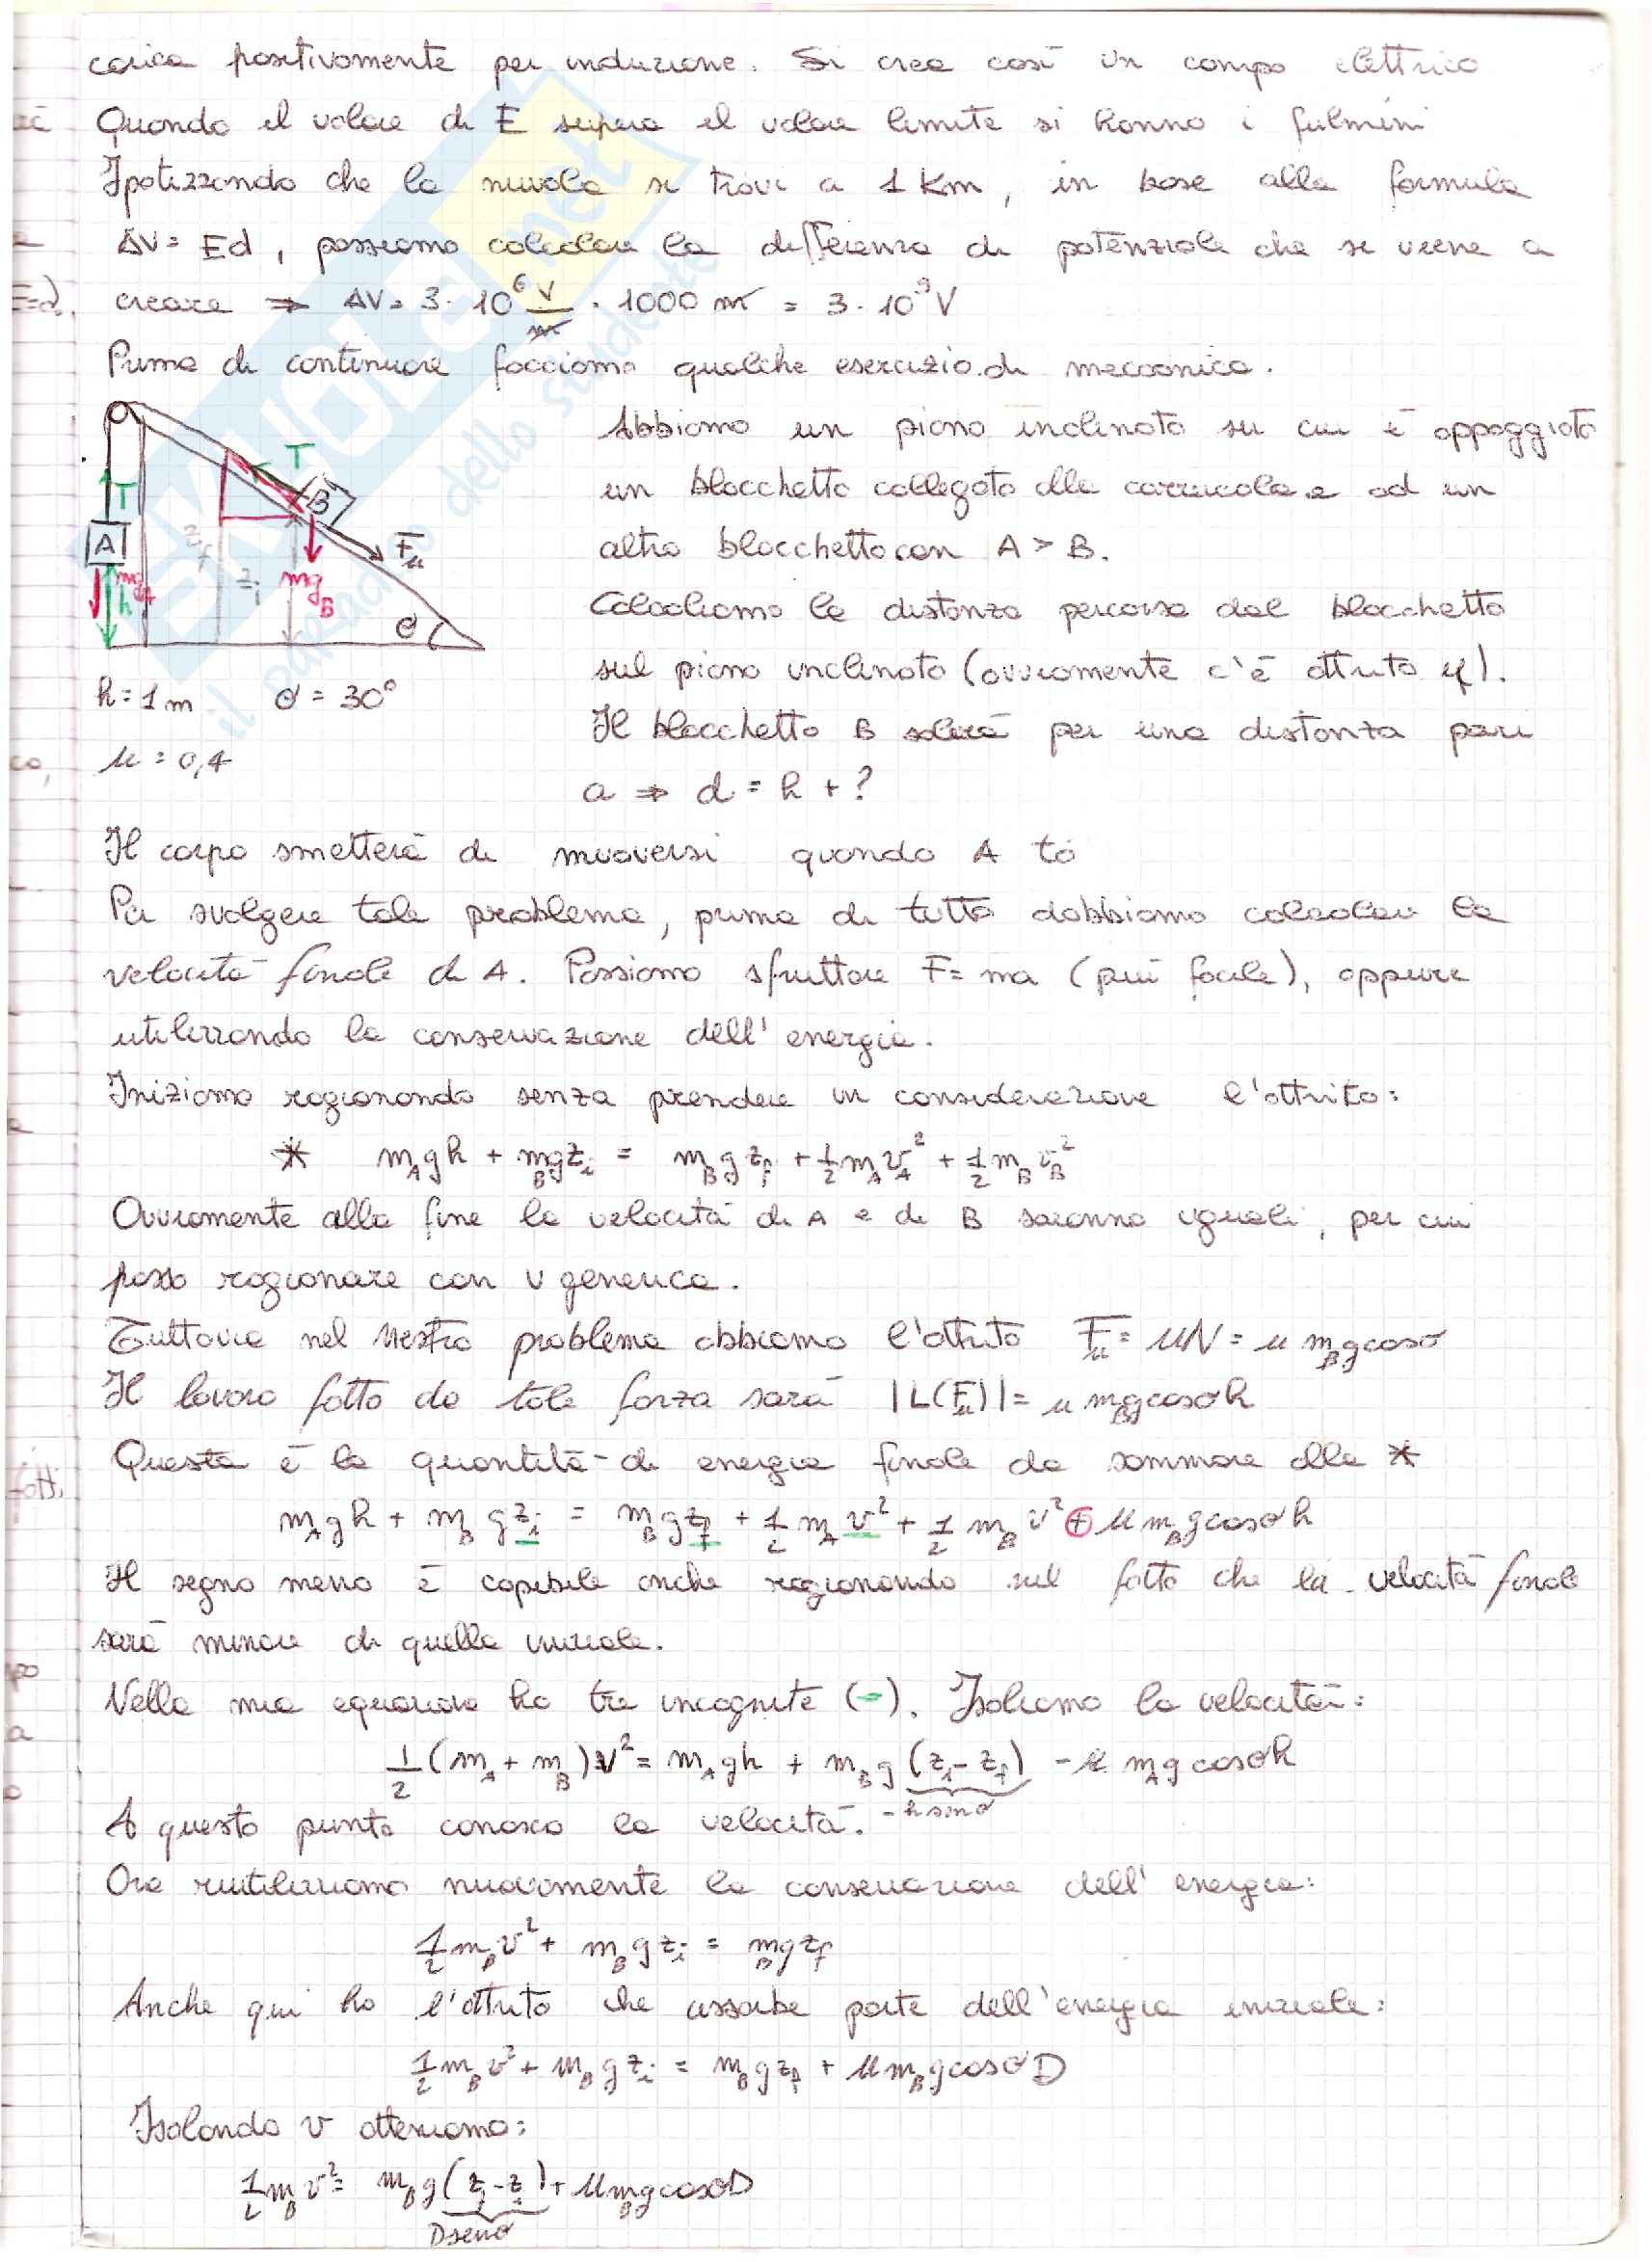 carica positivamente per induzione. Si crea così un campo elettrico
Quando il valore di E supera il valore limite si hanno i fulmini
Ipotizzando che la nuvola si trovi a 1 Km, in base alla formula
ΔV = Ed, possiamo calcolare la differenza di potenziale che si viene a
creare ⇒ ΔV = 3 · 10⁶ V/m · 1000 m = 3 · 10⁹ V
Prima di continuare facciamo qualche esercizio di meccanica.
Abbiamo un piano inclinato su cui è appoggiato
un blocchetto collegato alla carrucola e ad un
altro blocchetto con A > B.
Calcoliamo la distanza percorsa dal blocchetto
sul piano inclinato (ovviamente c'è attrito μ).
Il blocchetto B salirà per una distanza pari
a ⇒ d = h + ?
T
T
B
A
F_μ
mg_A
h
z_f
z_i
mg_B
θ
h = 1 m θ = 30°
μ = 0,4
Il corpo smetterà di muoversi quando A to
Per svolgere tale problema, prima di tutto dobbiamo calcolare la
velocità finale di A. Possiamo sfruttare F = ma (più facile), oppure
utilizzando la conservazione dell'energia.
Iniziamo ragionando senza prendere in considerazione l'attrito:
* m_A gh + m_B gz_i = m_B gz_f + 1/2 m_A v_A² + 1/2 m_B v_B²
Ovviamente alla fine la velocità di A e di B saranno uguali, per cui
posso ragionare con v generica.
Tuttavia nel nostro problema abbiamo l'attrito F_μ = μN = μ m_B g cosθ
Il lavoro fatto da tale forza sarà |L(F_μ)| = μ m_B g cosθ h
Questa è la quantità di energia finale da sommare alla *
m_A gh + m_B gz_i = m_B gz_f + 1/2 m_A v² + 1/2 m_B v² ⊕ μ m_B g cosθ h
Il segno meno è capibile anche ragionando sul fatto che la velocità finale
sarà minore di quella iniziale.
Nella mia equazione ho tre incognite (=). Isoliamo la velocità:
1/2 (m_A + m_B) v² = m_A gh + m_B g (z_i - z_f) - μ m_A g cosθ h
- h sinθ
A questo punto conosco la velocità.
Ora riutilizziamo nuovamente la conservazione dell'energia:
1/2 m_B v² + m_B gz_i = m_B gz_f
Anche qui ho l'attrito che assorbe parte dell'energia iniziale:
1/2 m_B v² + m_B gz_i = m_B gz_f + μ m_B g cosθ D
Isolando v otteniamo:
1/2 m_B v² = m_B g (z_f - z_i) + μ m_B g cosθ D
D senθ